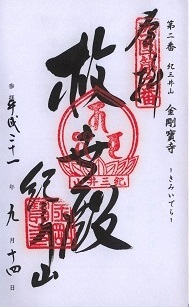 第二番 紀三井山 金剛寶寺
～きみいでら～
奉拝
救世殿
紀三井山
参拝 平成二十一年九月十四日